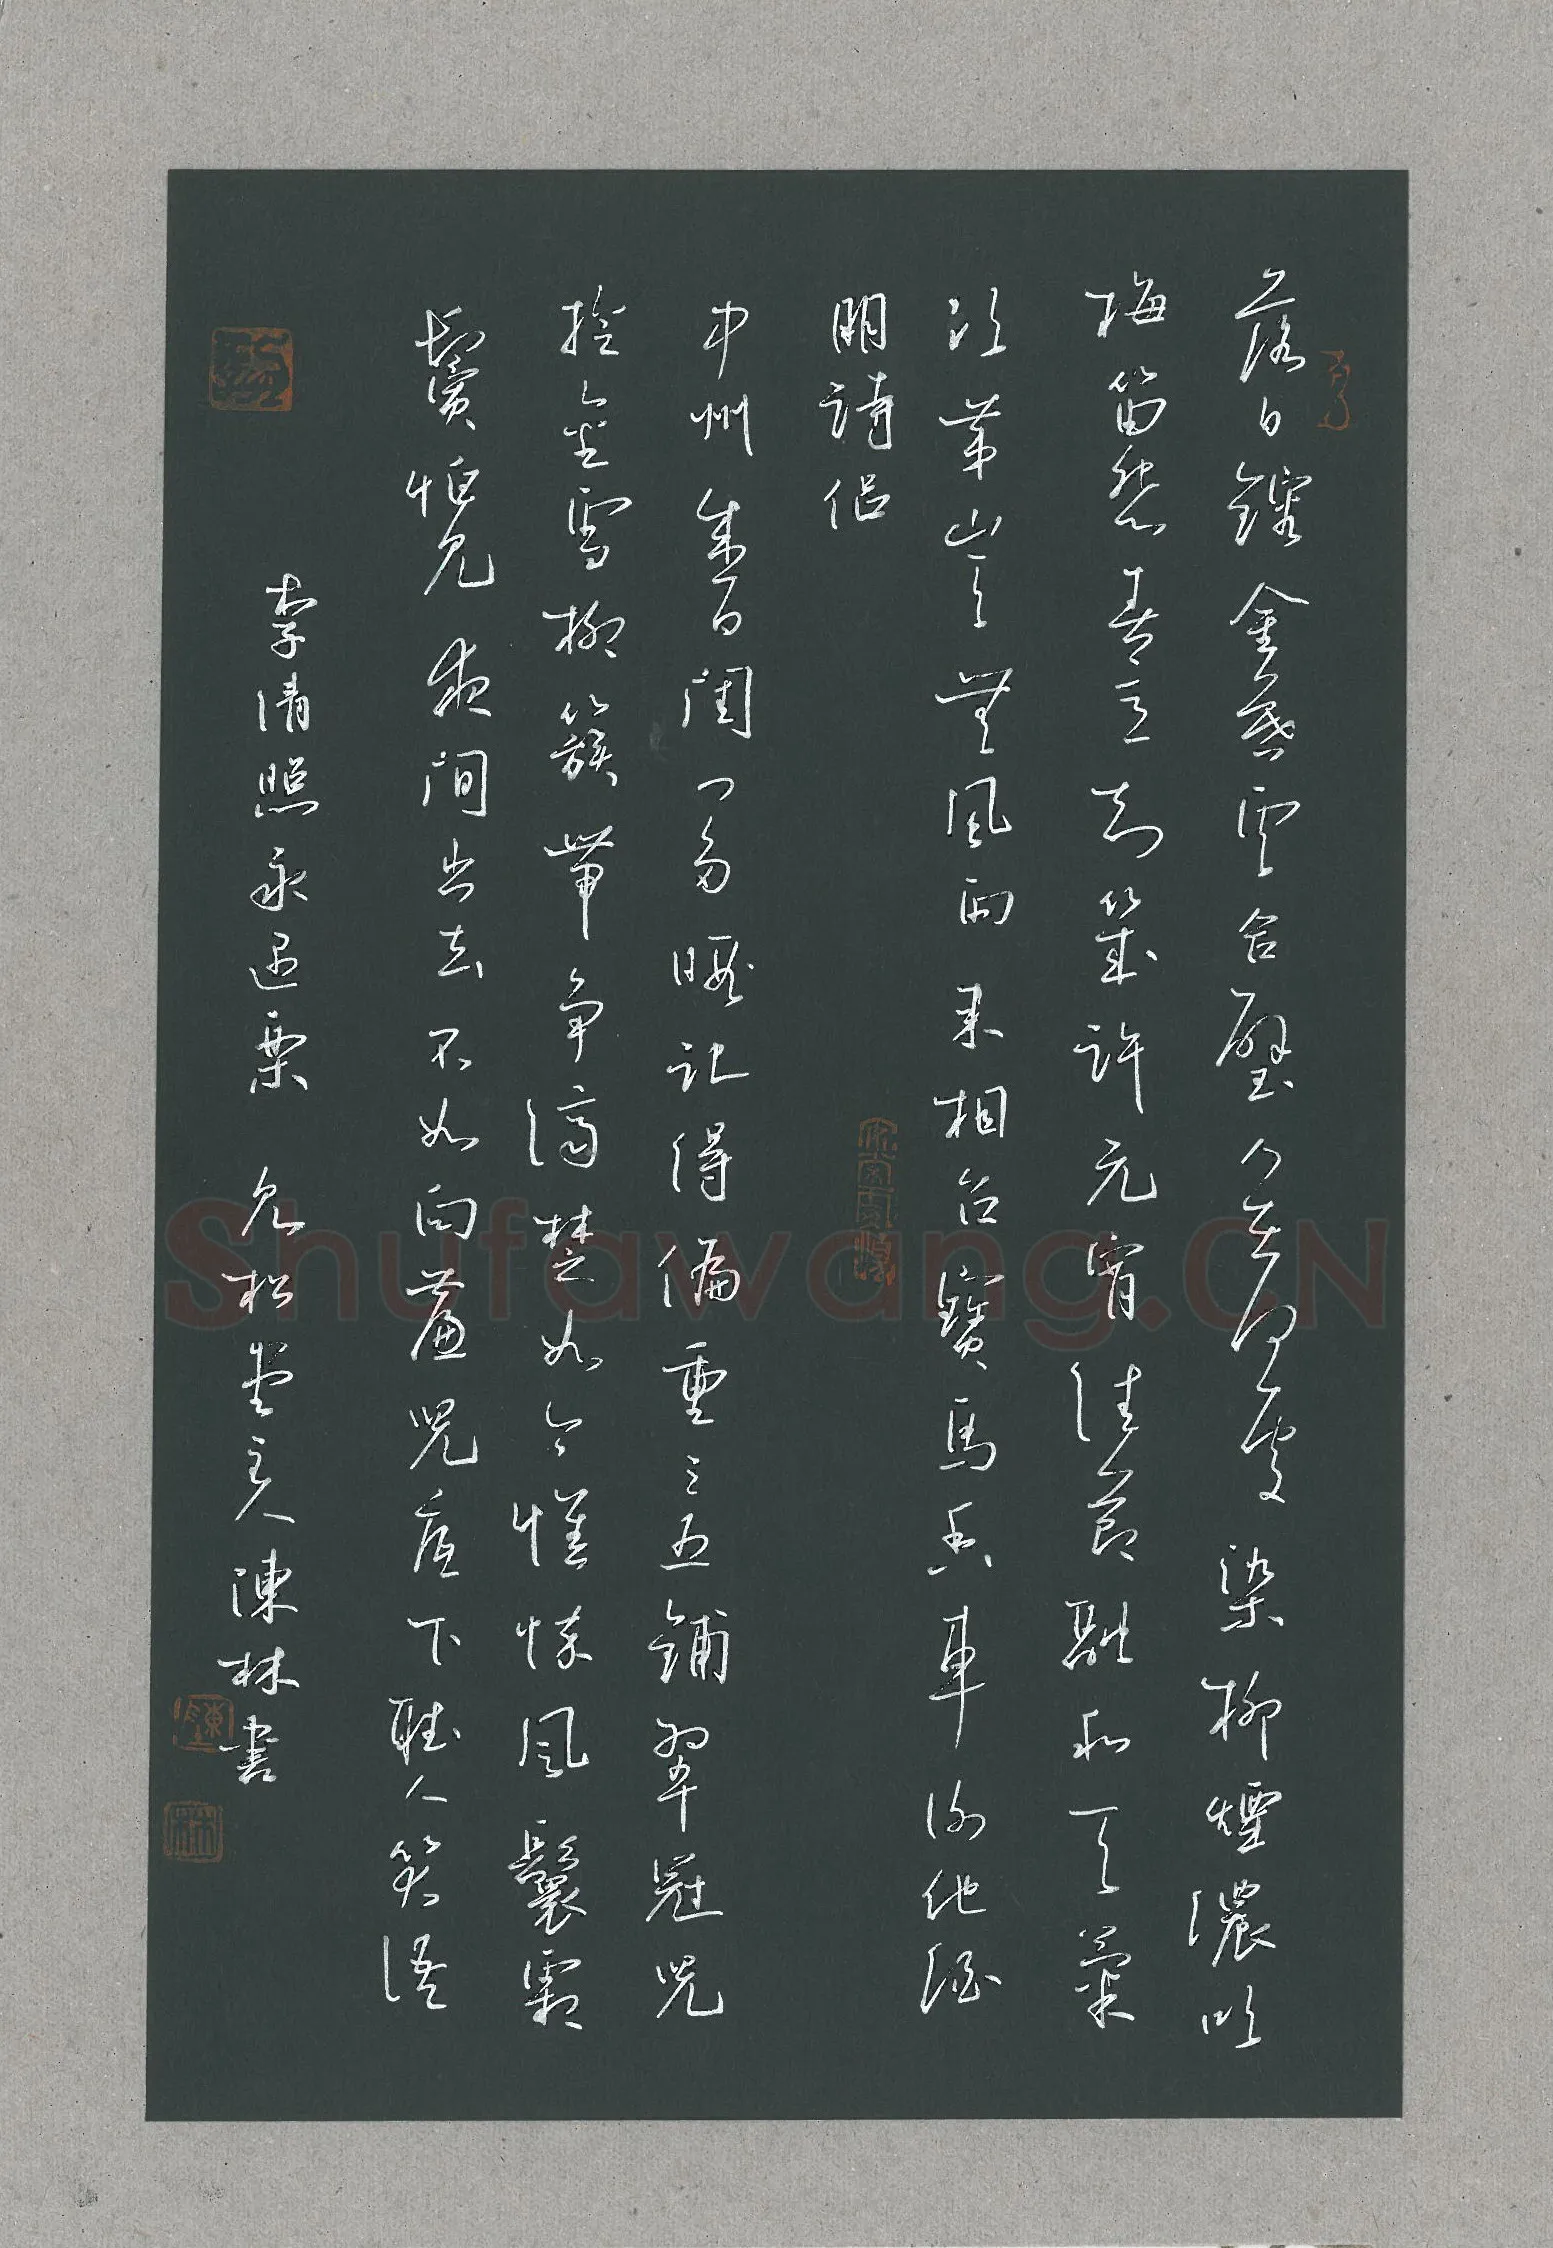 落日鎔金暮雲合璧人在何處染柳煙濃吹
梅笛怨春意知幾許元宵佳節融和天氣
次第豈無風雨來相召寶馬香車謝他酒
朋詩侶
中州盛日閨門多暇記得偏重三五鋪翠冠兒
撚金雪柳簇帶爭濟楚如今憔悴風鬟霜
鬢怕見夜間出去不如向簾兒底下聽人笑語
李清照永遇樂 見松堂主人陳林書
Shufawang.CN